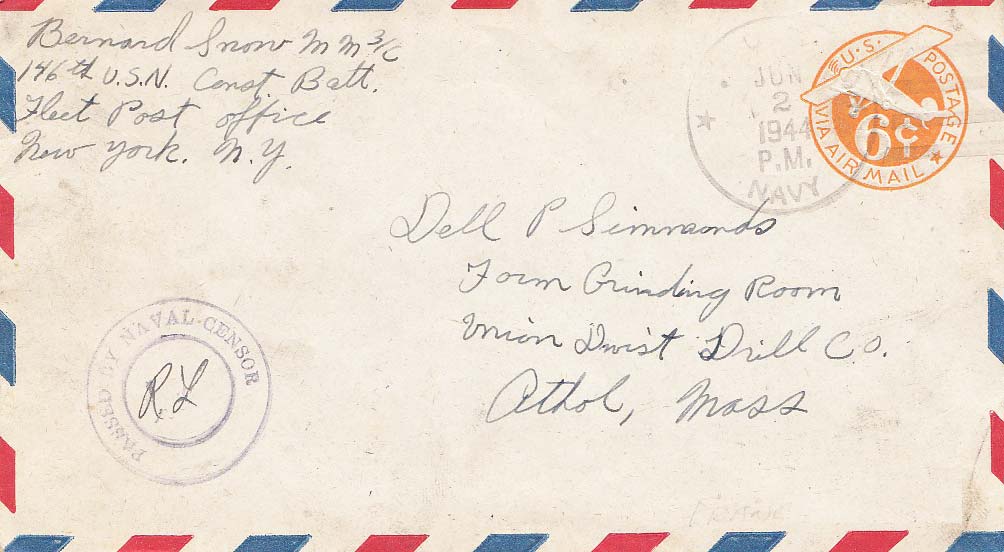 Bernard Snow M M 3/c
146th U.S.N. Const. Batt.
Fleet Post office
New York. N.Y.
JUN
2
1944
P.M.
NAVY
U.S. POSTAGE
6¢
VIA AIR MAIL
Dell P Simmonds
Form Grinding Room
Union Twist Drill Co.
Athol, Mass
PASSED BY NAVAL CENSOR
RL